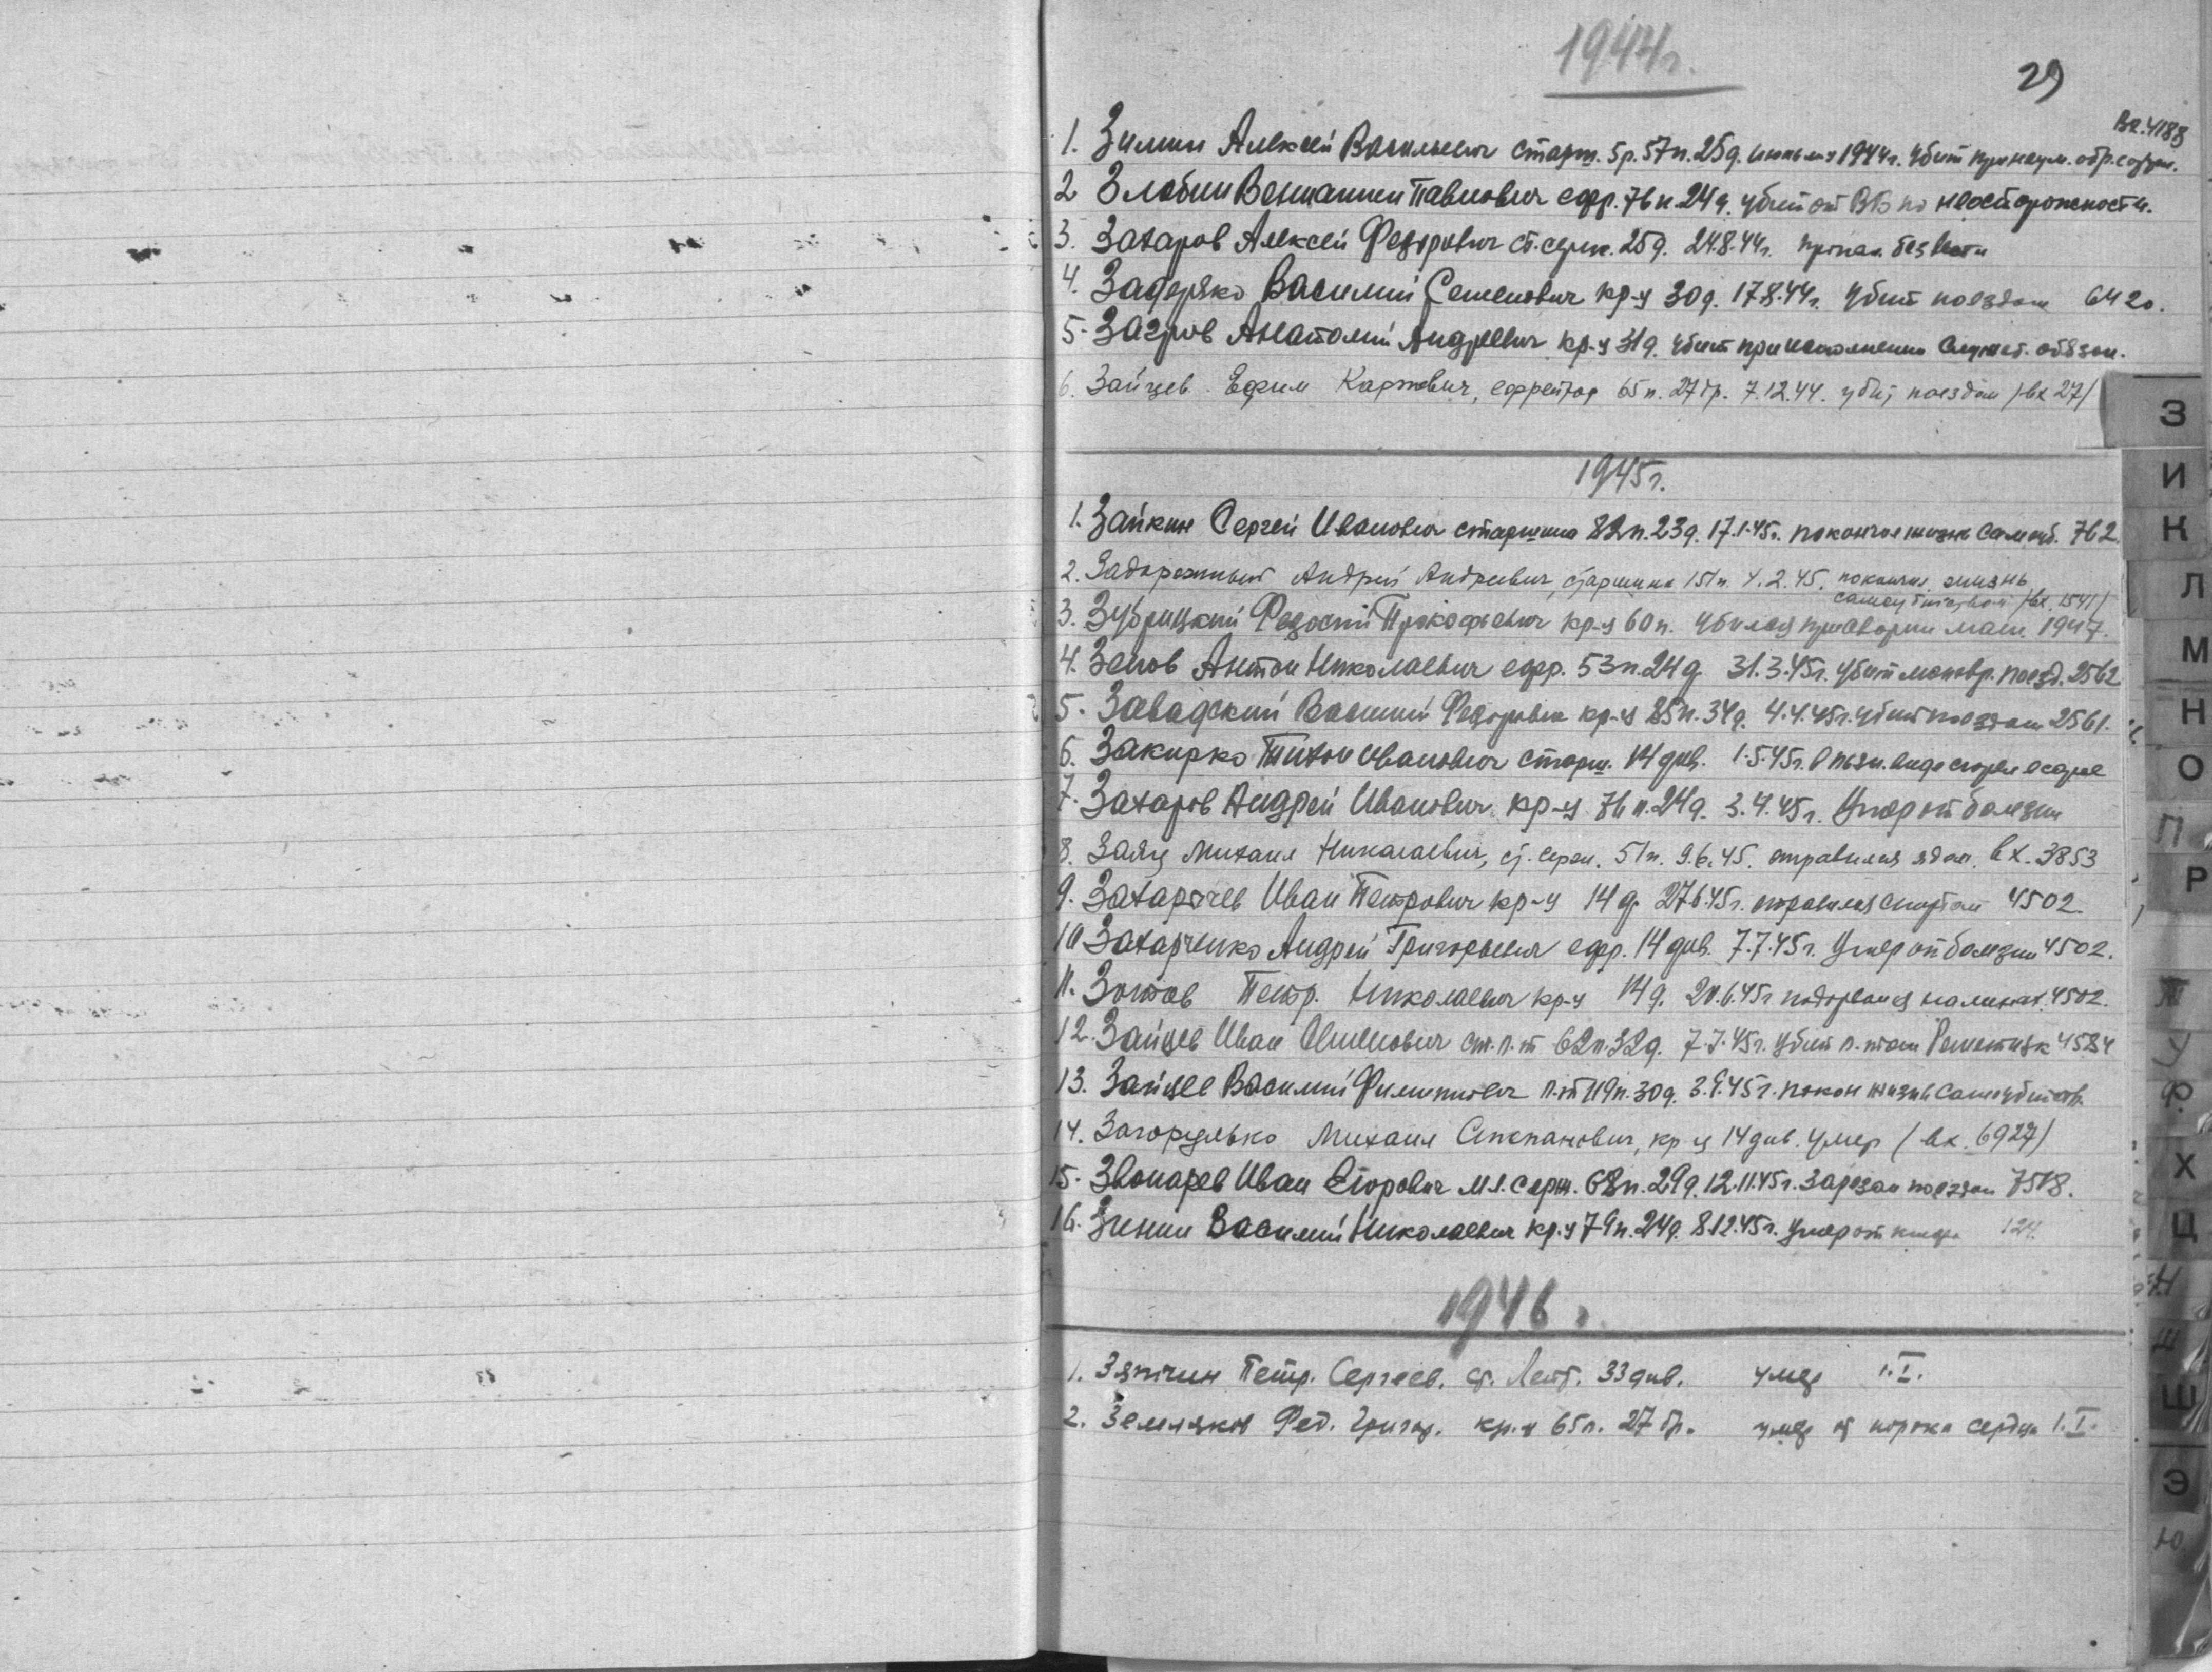 1944г.
29
Вх. 4188
1. Зимин Алексей Васильевич старш. 5р. 57п. 25д. 1944г. убит при неум. обр. с оруж.
2 Злобин Вениамин Павлович ефр. 76п 24д. убит от ВВ по неосторожности.
3. Захаров Алексей Федорович ст. серж. 25д. 24.8.44г. пропал без вести
4. Задеряко Василий Семенович кр-ц 30д. 17.8.44г. Убит поездом 6420.
5. Анатолий Андреевич кр-ц 31д. убит при исполнении служеб. обязан.
6. Зайцев Ефим Карпович, ефрейтор 65п. 27бр. 7.12.44. убит поездом /вх 27/
З
И
К
Л
М
Н
О
П
Р
У
Ф
Х
Ц
Ш
Э
Ю
1945г.
1. Зайкин Сергей Иванович старшина 82п. 23д. 17.1.45г. покончил жизнь самоуб. 762.
2. Задорожный Андрей Андреевич, старшина 151п. 4.2.45. покончил жизнь
самоубийством /вх. 1541/
3. Зубрицкий Федосий Прокофьевич кр-ц 60п. убился при аварии маш. 1947.
4. Антон Николаевич ефр. 53п. 24д 31.3.45г. убит маневр. поезд. 2562
5. Завадский Василий Федорович кр-ц 85п. 34д. 4.4.45г. убит поездом 2561.
6. Закирко Тихон Иванович старш. 14див. 1.5.45г. в пьян. виде сгорел в сарае
7. Захаров Андрей Иванович кр-ц 76п. 24д. 3.4.45г. Умер от болезни
8. Заяц Михаил Николаевич, ст. серж. 51п. 9.6.45. отравился ядом. вх. 3853
9. Захарычев Иван Петрович кр-ц 14д. 27.6.45г. отравился спиртом 4502.
10 Захарченко Андрей Григорьевич ефр. 14див. 7.7.45г. Умер от болезни 4502.
11. Зотов Петр. Николаевич кр-ц 14д. 20.6.45г подорвался на минах. 4502.
12. Зайцев Иван Семенович ст. л-т 62п. 32д. 7.7.45г. убит л-том 4584
13. Зайцев Василий Филиппович л-т 119п. 30д. 3.9.45г. покон жизнь самоубийств.
14. Загорулько Михаил Степанович, кр-ц 14див. умер (вх. 6927)
15. Звонарев Иван Егорович мл. серж. 68п. 29д. 12.11.45г. зарезан поездом 7518.
16. Зинин Василий Николаевич кр-ц 79п. 24д. 8.12.45г. умер от 124.
1946 г.
1. Зяпчин Петр. Сергеев. ст. Лейт. 33див. умер 1.I.
2. Земляков Фед. Григор. кр-ц 65п. 27бр. умер от порока сердца 1.I.